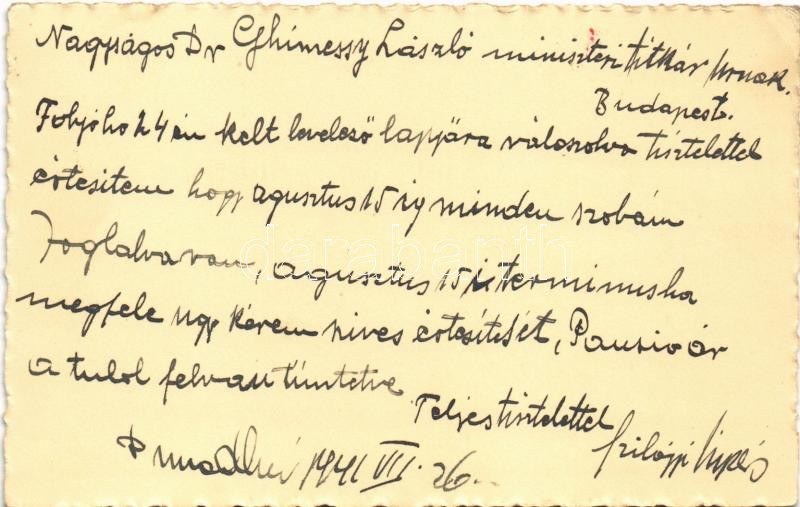 Nagyságos Dr Ghimessy László miniszteri titkár Urnak.
Budapest.
Folyó hó 24 én kelt levelező lapjára válaszolva tisztelettel
értesitem hogy agusztus 15 ig minden szobám
foglalva van, agusztus 15 i terminusha
megfele ugy kérem szives értesitését, Pausio ár
a tulol felvan tüntetve
Teljes tisztelettel
1941 VII. 26.
Szilágyi
darabanth